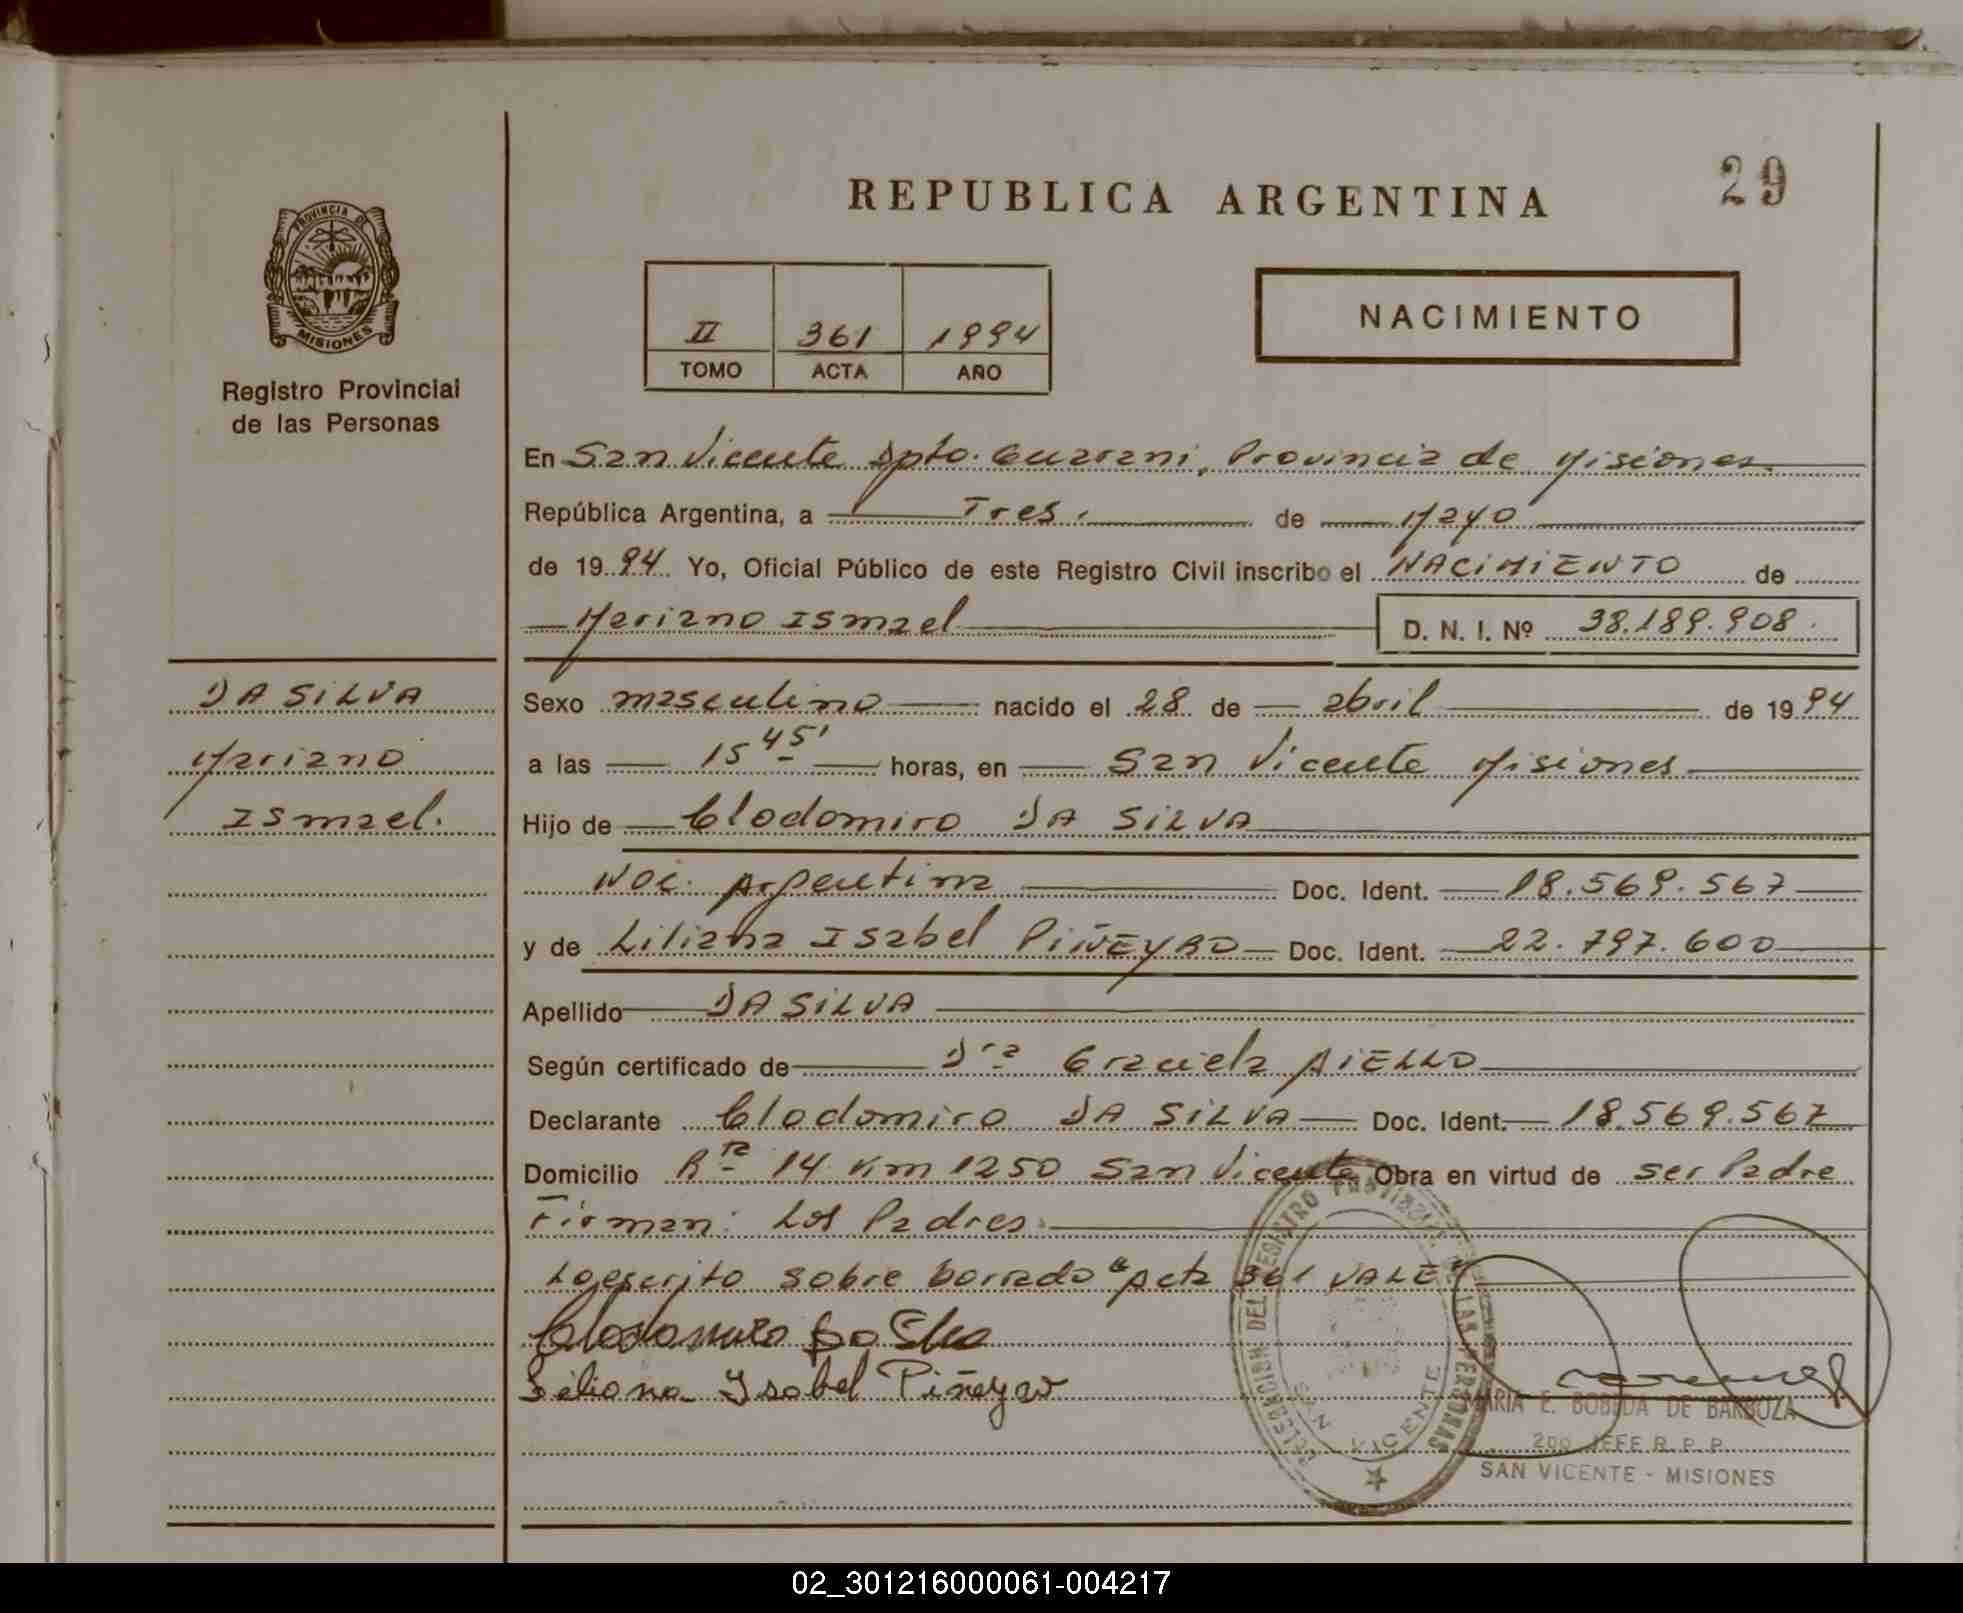 REPUBLICA ARGENTINA
29
PROVINCIA DE
MISIONES
Registro Provincial
de las Personas
II 361 1994
TOMO ACTA AÑO
NACIMIENTO
En San Vicente Dpto. Guarani, Provincia de Misiones
República Argentina, a Tres. de Mayo
de 1994 Yo, Oficial Público de este Registro Civil inscribo el NACIMIENTO de
Mariano Ismael D. N. I. Nº 38.189.908.
DA SILVA
Mariano
Ismael.
Sexo masculino nacido el 28 de abril de 1994
a las 15 45' horas, en San Vicente Misiones
Hijo de Clodomiro DA SILVA
Nac. Argentina Doc. Ident. 18.569.567
y de Liliana Isabel PIÑEYRO Doc. Ident. 22.797.600
Apellido DA SILVA
Según certificado de Dra Graciela AIELLO
Declarante Clodomiro DA SILVA Doc. Ident. 18.569.567
Domicilio Rta 14 Km 1250 San Vicente Obra en virtud de ser Padre
Firman: Los Padres.
Lo escrito sobre borrado "Acta 361 VALE
Clodomiro Da Silva
Liliana Isabel Piñeyro
DELEGACION DEL REGISTRO PROVINCIAL DE LAS PERSONAS
SAN VICENTE
MARIA E. BOBEDA DE BARBOZA
2do JEFE R. P. P.
SAN VICENTE - MISIONES
02_301216000061-004217